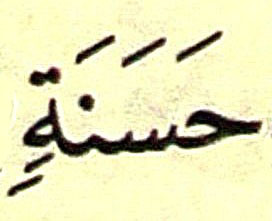 حَسَنَةِ